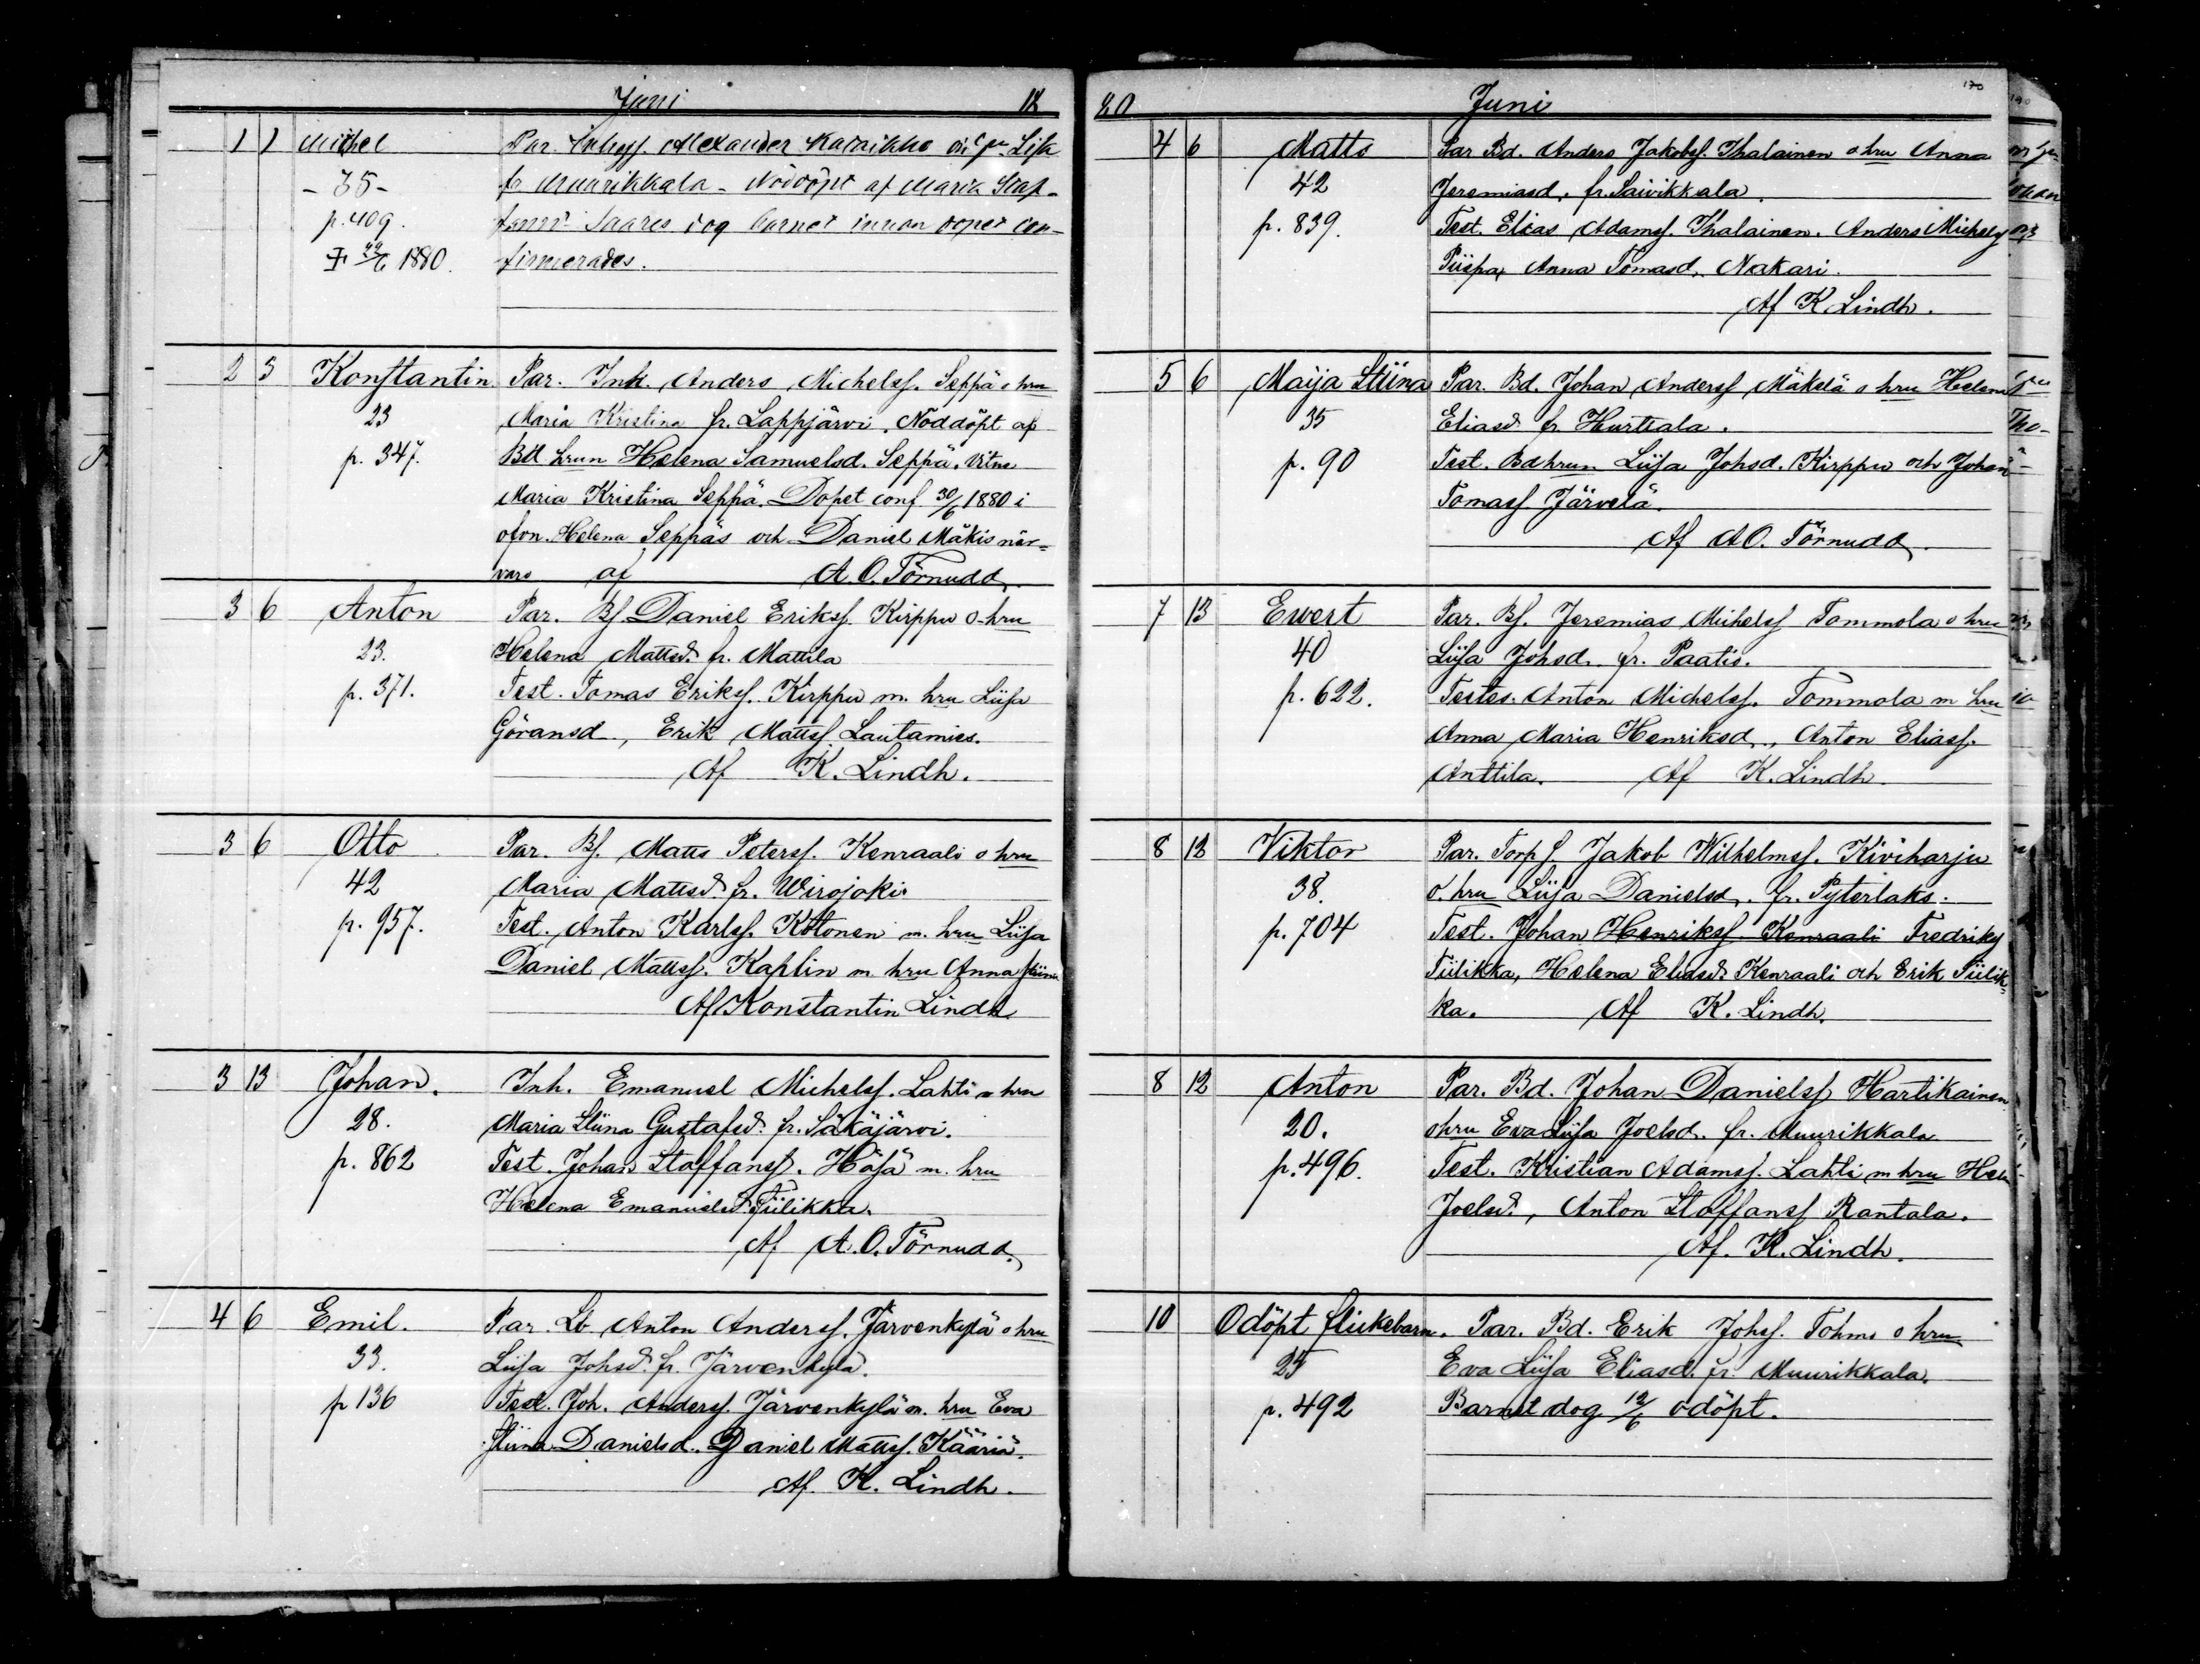 Juni 18
1 1 Michel Par. Alexander Karvikko
- 35 - fr Muurikkala - Nöddöpt af Maria Staf-
p. 409. Saares dog barnet innan dopet con-
1880. firmerades.
2 3 Konstantin Par. Inh. Anders Michelss. Seppä o hru
23 Maria Kristina fr. Lappjärvi. Nöddöpt af
p. 347. Bd hrun Helena Samuelsd. Seppä. Vitne
Maria Kristina Seppä. Dopet conf 30/6 1880 i
ofvn. Helena Seppäs och Daniel Mäkis när-
varo af A. O. Törnudd.
3 6 Anton Par. Bs. Daniel Erikss. Kirppu o hru
23. Helena Mattsd. fr. Mattila
p. 371. Test. Tomas Erikss. Kirppu m. hru Liisa
Göransd., Erik Mattss. Lautamies.
Af K. Lindh.
3 6 Otto Par. Bs. Matts Peterss. Kenraali o hru
42 Maria Mattsd. fr. Wirojoki.
p. 957. Test. Anton Karlss. Kotonen m. hru Liisa
Daniel Mattss. Kaplin m hru Anna Stiina
Af Konstantin Lindh
3 13 Johan. Inh. Emanuel Michelss. Lahti o hru
28. Maria Stiina Gustafsd. fr. Säkäjärvi.
p. 862 Test. Johan Staffanss. Häsä m. hru
Helena Emanuelsd. Tiilikka.
Af A. O. Törnudd.
4 6 Emil. Par. Lb Anton Anderss. Järvenkylä o hru
33. Liisa Johsd. fr. Järvenkylä.
p 136 Test. Joh. Anderss. Järvenkylä m. hru Eva
Stiina Danielsd. Daniel Mattss. Kääriä.
Af. K. Lindh.
80 Juni 170
4 6 Matts Par Bd. Anders Jakobss. Ihalainen o hru Anna
42 Jeremiasd. fr. Saivikkala.
p. 839. Test. Elias Adamss. Ihalainen. Anders Michelss
Piispa, Anna Tomasd. Nakari.
Af K Lindh.
5 6 Maija Stiina Par. Bd. Johan Anderss Mäkelä o hru Helena
35 Eliasd fr Hurttala.
p. 90 Test. Bd hrun Liisa Johsd. Kirppu och Johan
Tomass. Järvelä.
Af A O. Törnudd.
7 13 Evert Par. Bs. Jeremias Michelss Tommola o hru
40 Liisa Johsd. fr. Paatio.
p. 622. Testes. Anton Michelss. Tommola m hru
Anna Maria Henriksd., Anton Eliass.
Anttila. Af K. Lindh.
8 12 Viktor Par. Torp s. Jakob Wilhelmss. Kiviharju
38. o. hru Liisa Danielsd. fr. Pyterlaks.
p. 704 Test. Johan Henrikss. Kenraali Fredrikss
Tiilikka, Helena Eliasd. Kenraali och Erik Tiilik-
ka. Af K. Lindh.
8 12 Anton Par. Bd. Johan Danielss Hartikainen
20. o hru Eva Liisa Joelsd. fr. Muurikkala
p. 496. Test. Kristian Adamss. Lahti m hru
Joelsd., Anton Staffanss Rantala.
Af. K. Lindh.
10 Odöpt flickebarn. Par. Bd. Erik Johss. Tohmo o hru
25 Eva Liisa Eliasd. fr. Muurikkala.
p. 492 Barnet dog 12/6 odöpt.